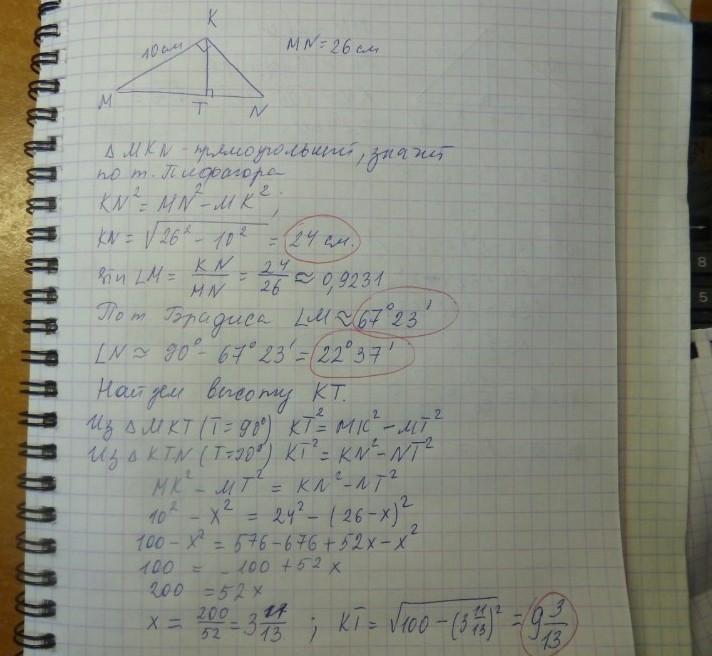 K
10 см MN = 26 см
M T N
△ MKN - прямоугольный, значит
по т. Пифагора
KN² = MN² - MK²;
KN = √26² - 10² = 24 см.
sin ∠M = KN/MN = 24/26 ≈ 0,9231
По т. Брадиса ∠M ≈ 67° 23'
∠N ≈ 90° - 67° 23' = 22° 37'
Найдем высоту KT.
Из △ MKT (T = 90°) KT² = MK² - MT²
Из △ KTN (T = 90°) KT² = KN² - NT²
MK² - MT² = KN² - NT²
10² - x² = 24² - (26 - x)²
100 - x² = 576 - 676 + 52x - x²
100 = -100 + 52x
200 = 52x
x = 200/52 = 3 11/13 ; KT = √100 - (3 11/13)² = 9 3/13
8
5